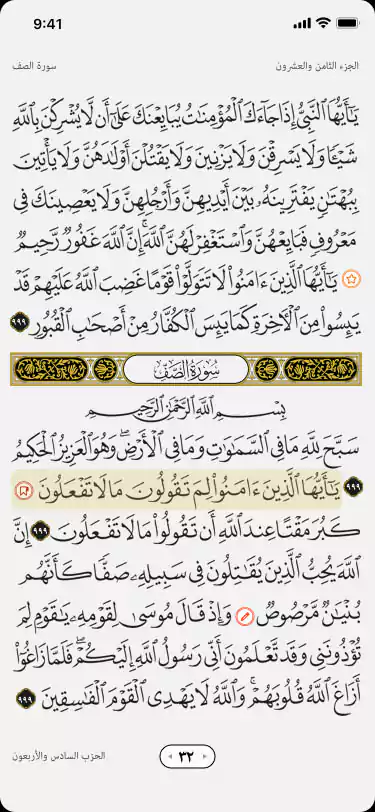 9:41
الجزء الثامن والعشرون
سورة الصف
يَٰٓأَيُّهَا ٱلنَّبِيُّ إِذَا جَآءَكَ ٱلْمُؤْمِنَٰتُ يُبَايِعْنَكَ عَلَىٰٓ أَن لَّا يُشْرِكْنَ بِٱللَّهِ
شَيْـًٔا وَلَا يَسْرِقْنَ وَلَا يَزْنِينَ وَلَا يَقْتُلْنَ أَوْلَٰدَهُنَّ وَلَا يَأْتِينَ
بِبُهْتَٰنٍ يَفْتَرِينَهُۥ بَيْنَ أَيْدِيهِنَّ وَأَرْجُلِهِنَّ وَلَا يَعْصِينَكَ فِى
مَعْرُوفٍ فَبَايِعْهُنَّ وَٱسْتَغْفِرْ لَهُنَّ ٱللَّهَ ۖ إِنَّ ٱللَّهَ غَفُورٌ رَّحِيمٌ
يَٰٓأَيُّهَا ٱلَّذِينَ ءَامَنُوا۟ لَا تَتَوَلَّوْا۟ قَوْمًا غَضِبَ ٱللَّهُ عَلَيْهِمْ قَدْ
يَئِسُوا۟ مِنَ ٱلْءَاخِرَةِ كَمَا يَئِسَ ٱلْكُفَّارُ مِنْ أَصْحَٰبِ ٱلْقُبُورِ ٩٩٩
سُورَةُ الصَّفِّ
بِسْمِ ٱللَّهِ ٱلرَّحْمَٰنِ ٱلرَّحِيمِ
سَبَّحَ لِلَّهِ مَا فِى ٱلسَّمَٰوَٰتِ وَمَا فِى ٱلْأَرْضِ ۖ وَهُوَ ٱلْعَزِيزُ ٱلْحَكِيمُ
٩٩٩ يَٰٓأَيُّهَا ٱلَّذِينَ ءَامَنُوا۟ لِمَ تَقُولُونَ مَا لَا تَفْعَلُونَ
كَبُرَ مَقْتًا عِندَ ٱللَّهِ أَن تَقُولُوا۟ مَا لَا تَفْعَلُونَ ٩٩٩ إِنَّ
ٱللَّهَ يُحِبُّ ٱلَّذِينَ يُقَٰتِلُونَ فِى سَبِيلِهِۦ صَفًّا كَأَنَّهُم
بُنْيَٰنٌ مَّرْصُوصٌ وَإِذْ قَالَ مُوسَىٰ لِقَوْمِهِۦ يَٰقَوْمِ لِمَ
تُؤْذُونَنِى وَقَد تَّعْلَمُونَ أَنِّى رَسُولُ ٱللَّهِ إِلَيْكُمْ ۖ فَلَمَّا زَاغُوٓا۟
أَزَاغَ ٱللَّهُ قُلُوبَهُمْ ۚ وَٱللَّهُ لَا يَهْدِى ٱلْقَوْمَ ٱلْفَٰسِقِينَ ٩٩٩
٣٢
الحزب السادس والأربعون